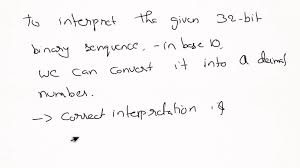 To interpret the given 32-bit
binary senquence. - in base 10,
we can convert it into a decimal
number.
-> correct interpretation is